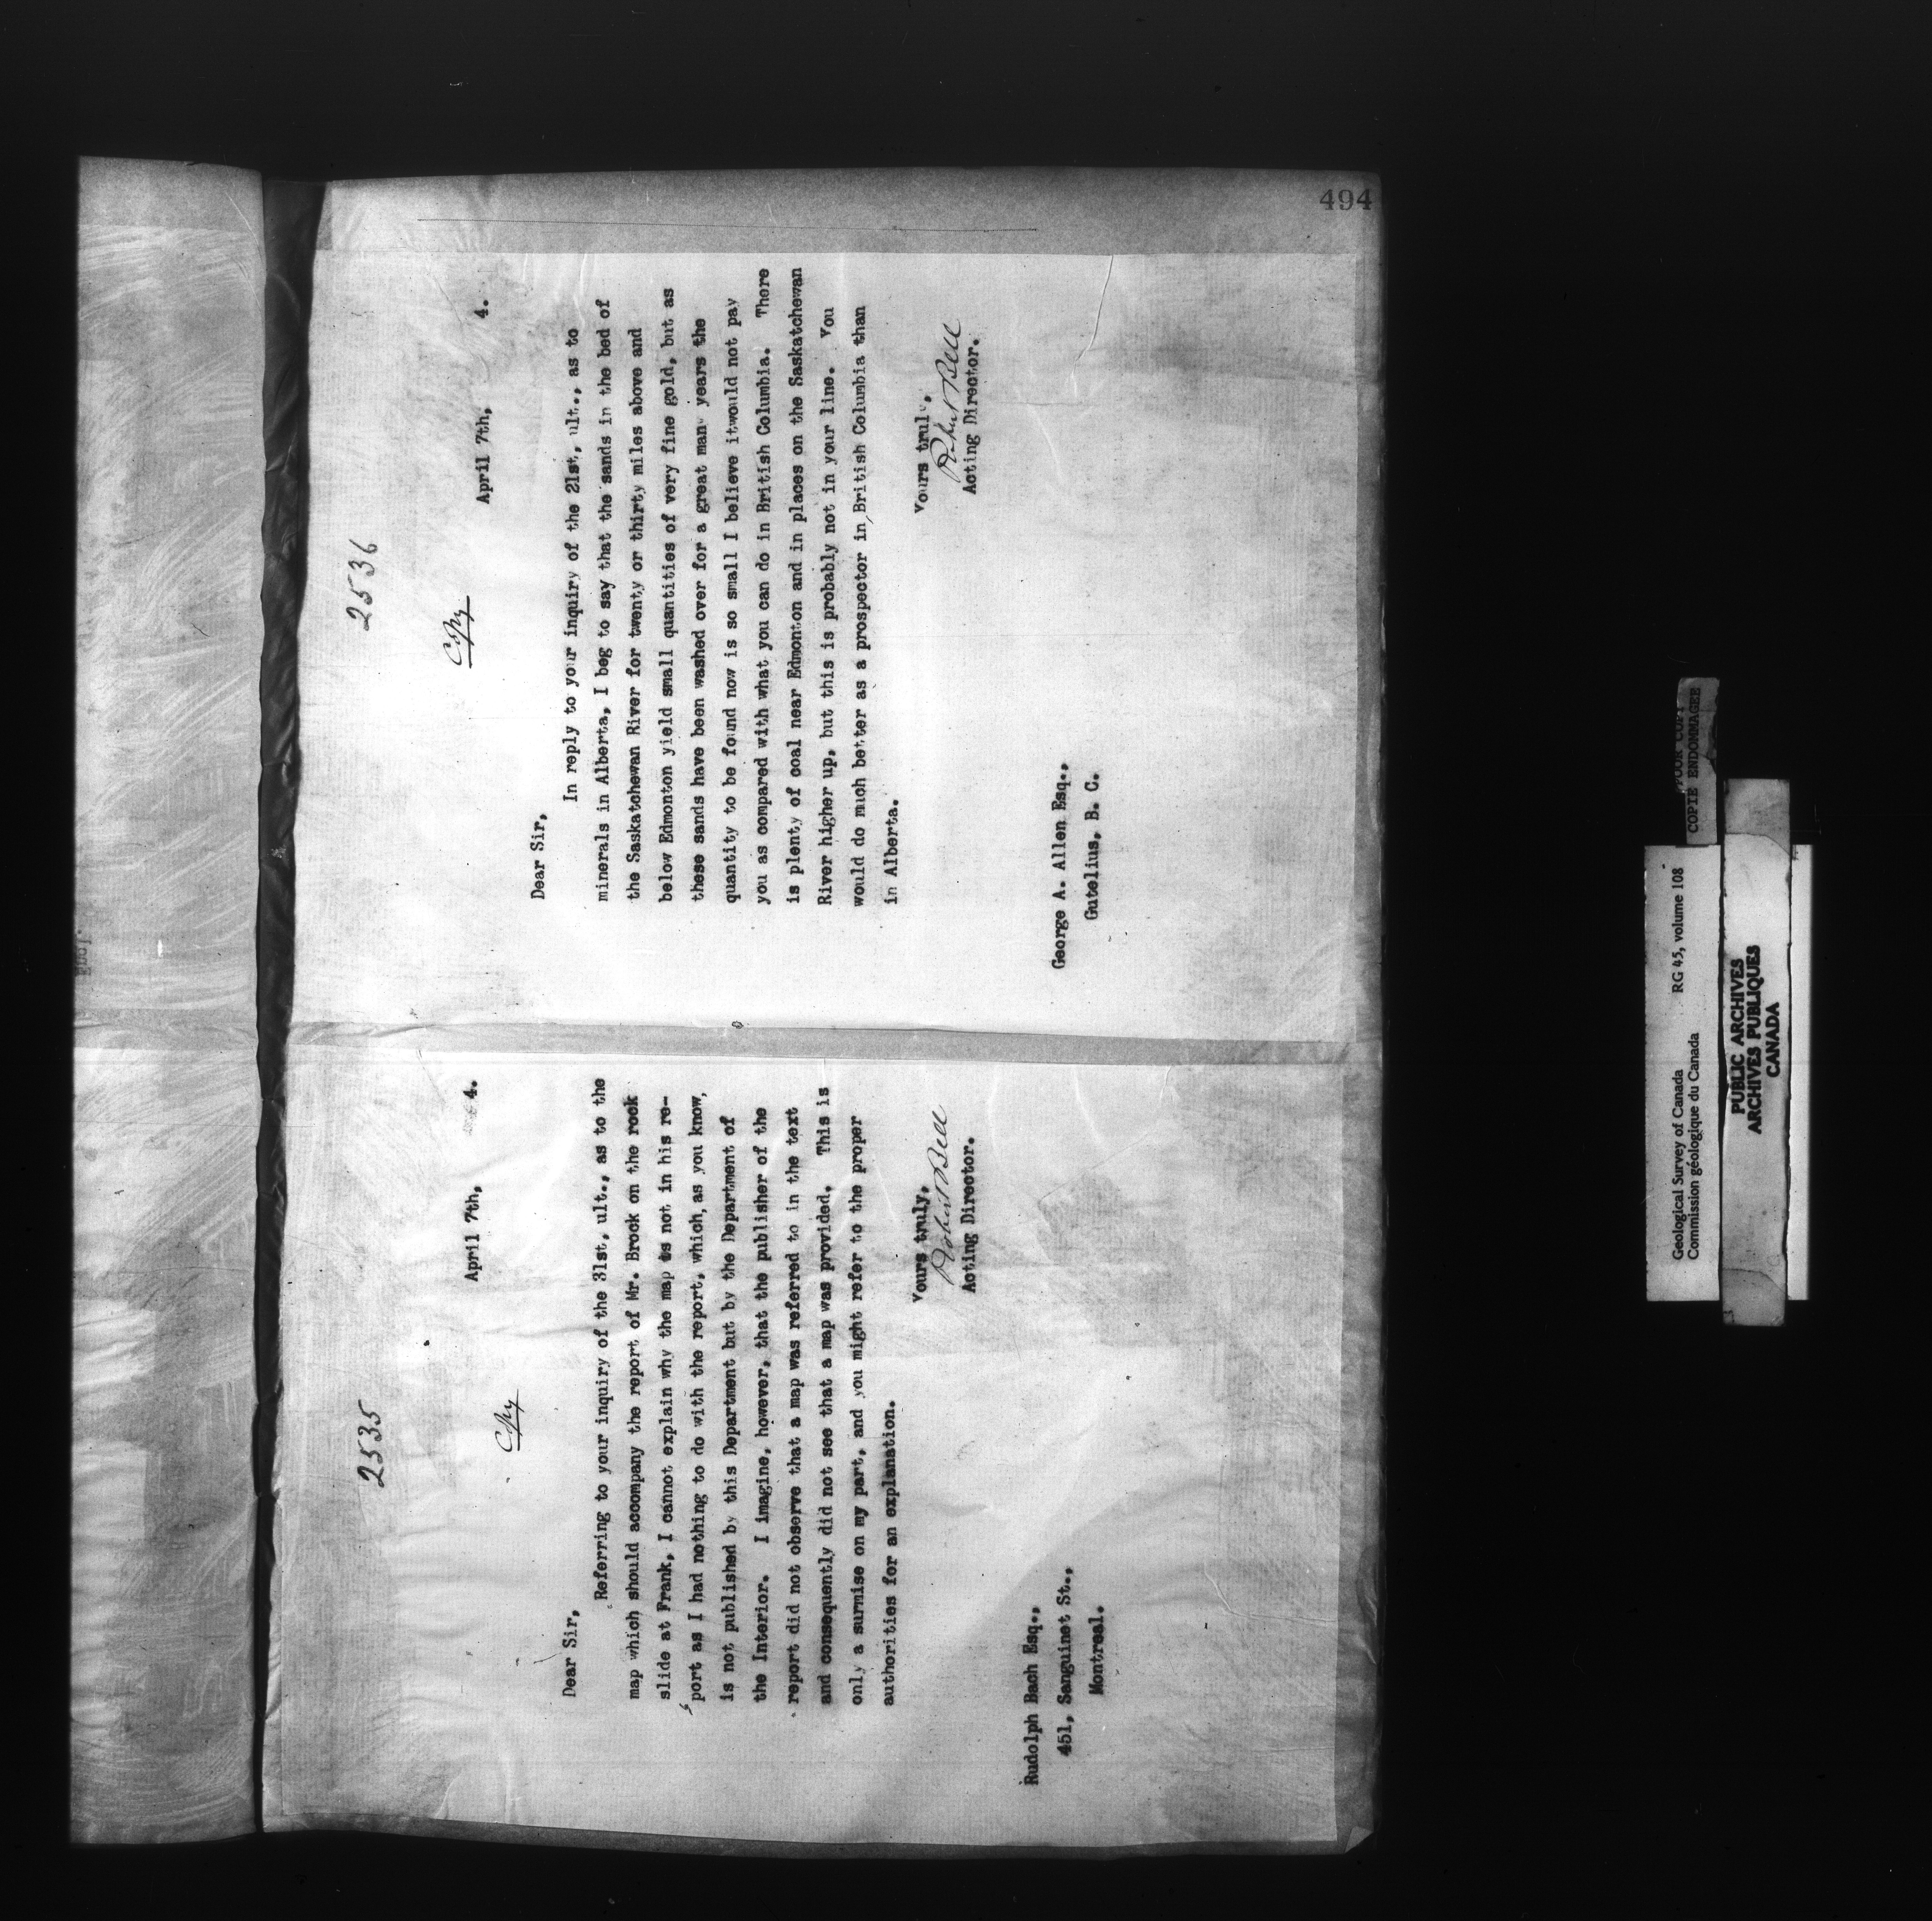 494
2535
Copy
April 7th, 4.
Dear Sir,
Referring to your inquiry of the 31st, ult., as to the
map which should accompany the report of Mr. Brock on the rock
slide at Frank, I cannot explain why the map is not in his re-
port as I had nothing to do with the report, which, as you know,
is not published by this Department but by the Department of
the Interior. I imagine, however, that the publisher of the
report did not observe that a map was referred to in the text
and consequently did not see that a map was provided. This is
only a surmise on my part, and you might refer to the proper
authorities for an explanation.
Yours truly,
Robert Bell
Acting Director.
Rudolph Bach Esq.,
451, Sanguinet St.,
Montreal.
2536
Copy
April 7th, 4.
Dear Sir,
In reply to your inquiry of the 21st, ult., as to
minerals in Alberta, I beg to say that the sands in the bed of
the Saskatchewan River for twenty or thirty miles above and
below Edmonton yield small quantities of very fine gold, but as
these sands have been washed over for a great many years the
quantity to be found now is so small I believe itwould not pay
you as compared with what you can do in British Columbia. There
is plenty of coal near Edmonton and in places on the Saskatchewan
River higher up, but this is probably not in your line. You
would do much better as a prospector in British Columbia than
in Alberta.
Yours truly,
Robert Bell
Acting Director.
George A. Allen Esq.,
Gutelius, B. C.
Geological Survey of Canada RG 45, volume 108
Commission géologique du Canada
POOR COPY
COPIE ENDOMMAGEE
PUBLIC ARCHIVES
ARCHIVES PUBLIQUES
CANADA